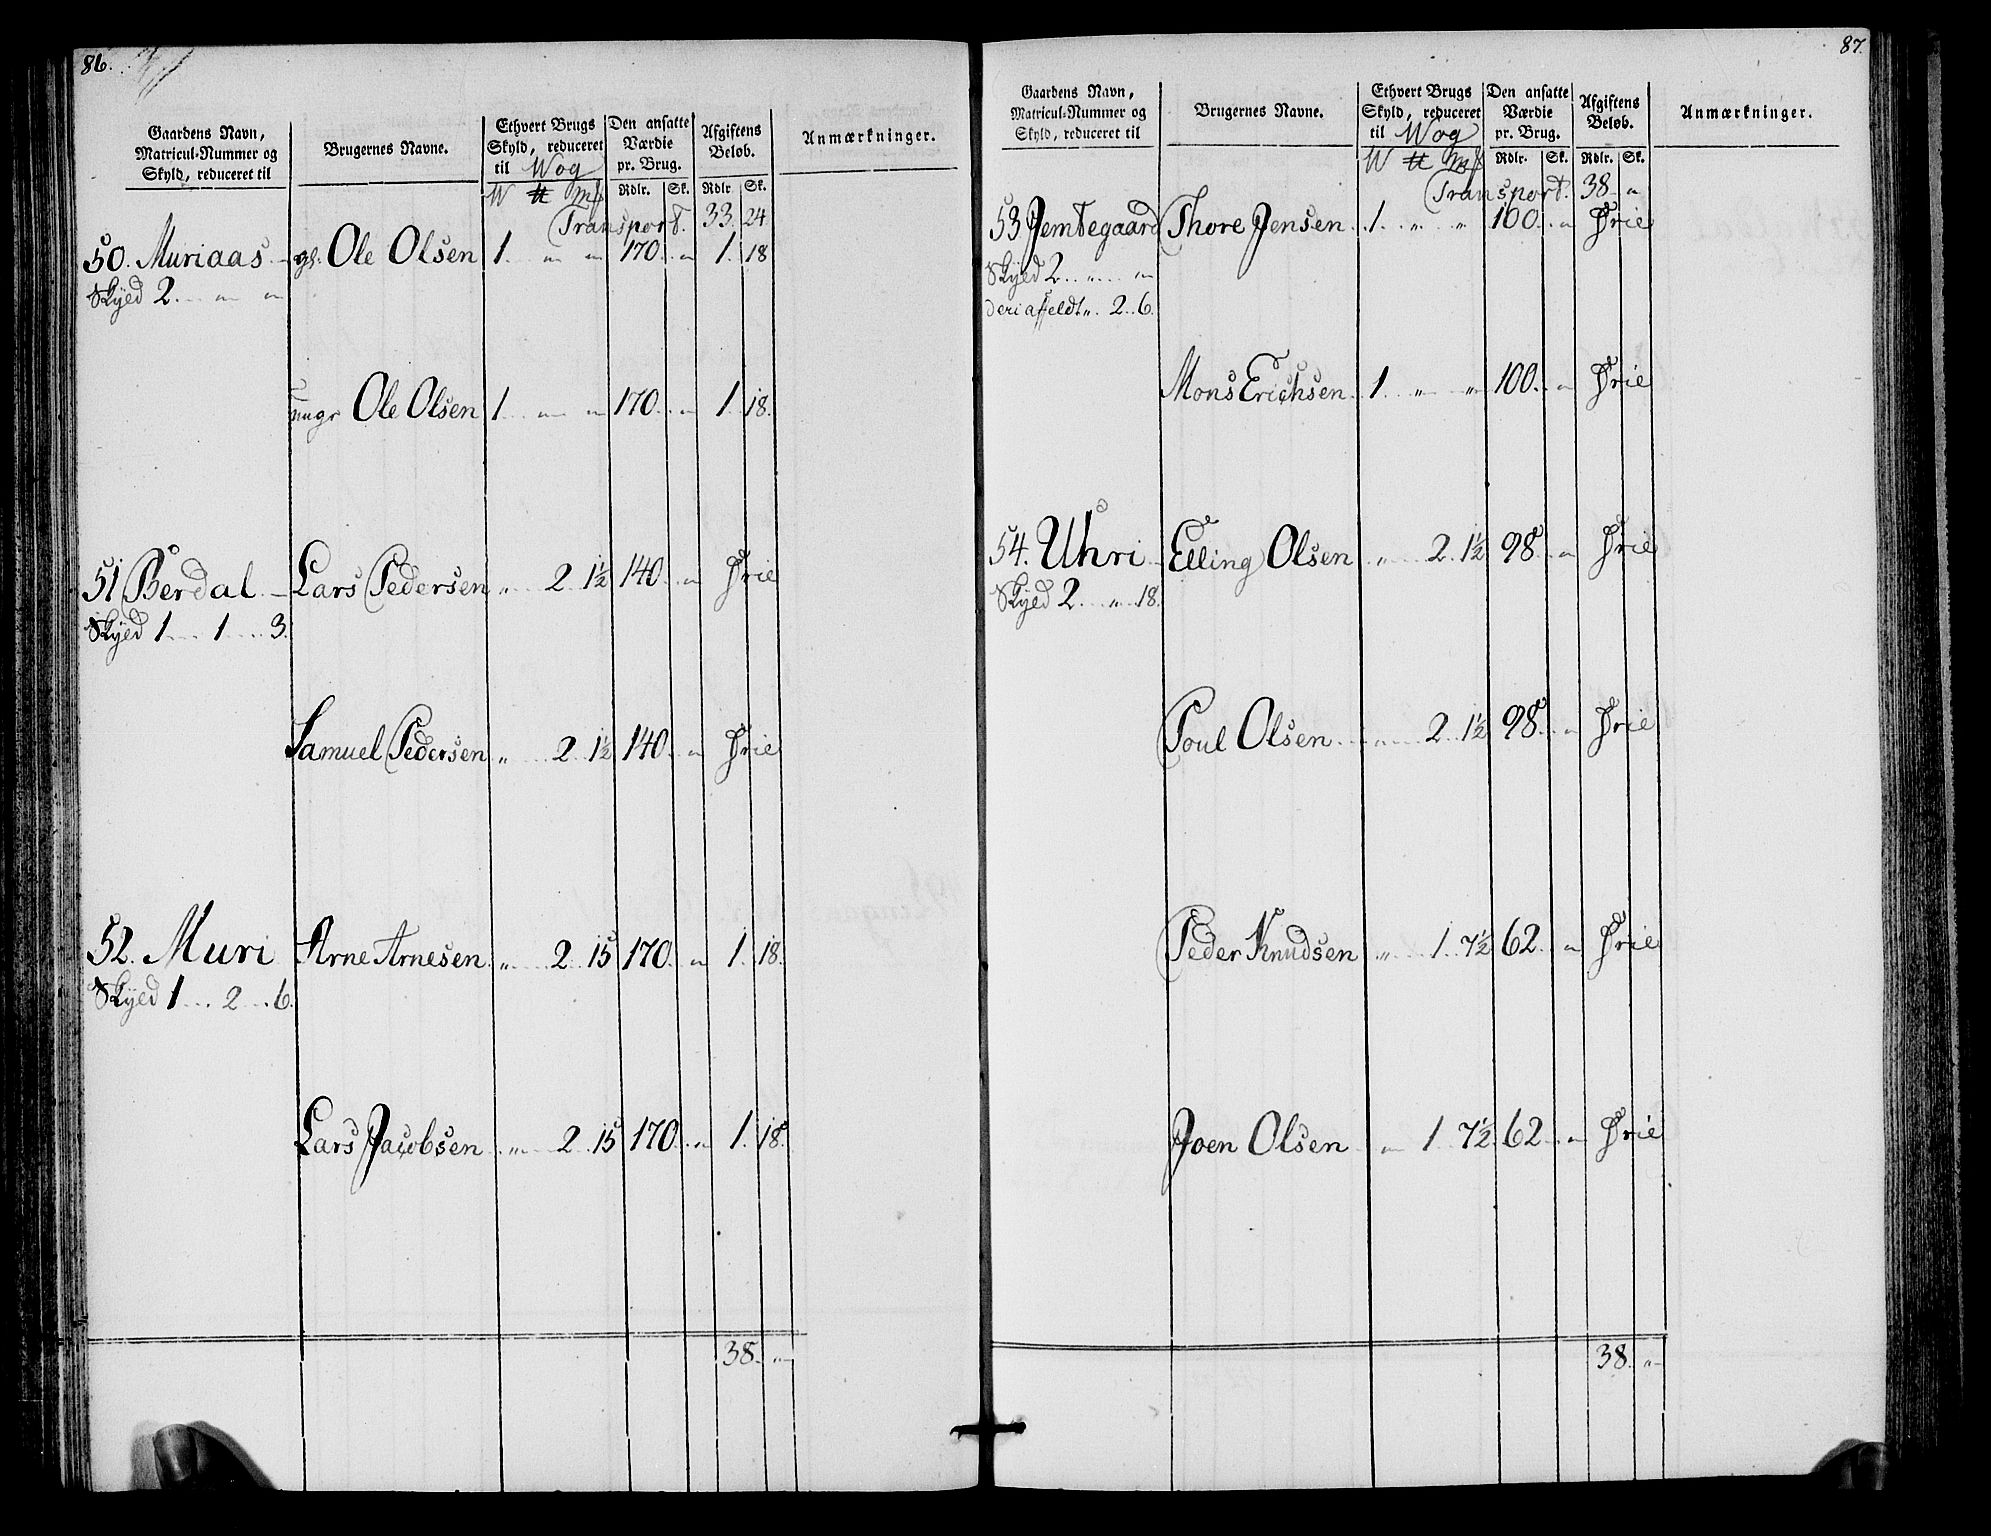 86.
Gaardens Navn, Matricul-Nummer og Skyld, reduceret til | Brugernes Navne. | Ethvert Brugs Skyld, reduceret til Wog | Den ansatte Værdie pr. Brug. | Afgiftens Beløb. | Anmærkninger.
W ℔ mk | Rdlr. Sk. | Rdlr. Sk.
Transport. 33. 24
50. Muriaas gl. Ole Olsen 1. „ „ 170. „ 1. 18
Skyld 2. „ „
ungr Ole Olsen 1. „ „ 170. „ 1. 18.
51 Berdal Lars Pedersen „ 2. 1½ 140. „ Frie
Skyld 1. 1. 3.
Samuel Pedersen „ 2. 1½ 140. „ Frie
52. Muri Arne Arnesen „ 2. 15 170. „ 1. 18.
Skyld 1. 2. 6.
Lars Jacobsen „ 2. 15 170. „ 1. 18.
38. „
87.
Gaardens Navn, Matricul-Nummer og Skyld, reduceret til | Brugernes Navne. | Ethvert Brugs Skyld, reduceret til Wog | Den ansatte Værdie pr. Brug. | Afgiftens Beløb. | Anmærkninger.
W ℔ mk | Rdlr. Sk. | Rdlr. Sk.
Transport. 38. „
53 Jemtegaard Thore Jensen 1. „ „ 100. „ Frie
Skyld 2. „ „
deri affeldt „ 2. 6.
Mons Erichsen 1. „ „ 100. „ Frie
54. Uhri Elling Olsen „ 2. 1½ 98. „ Frie
Skyld 2. „ 18.
Poul Olsen „ 2. 1½ 98. „ Frie
Peder Knudsen „ 1. 7½ 62. „ Frie
Joen Olsen „ 1. 7½ 62. „ Frie
38. „